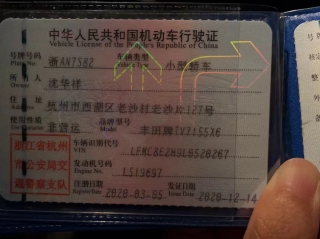 中华人民共和国机动车行驶证
Vehicle License of the People's Republic of China
号牌号码 浙AN7582 车辆类型 小型轿车
Plate No. Vehicle Type
所有人 沈华祥
Owner
住址 杭州市西湖区老沙村老沙片127号
使用性质 非营运 品牌型号 丰田牌
Model
浙江省杭州 车辆识别代号
VIN
市公安局交 发动机号码
Engine No.
通警察支队 注册日期 2020-03-05 发证日期 2020-12-14